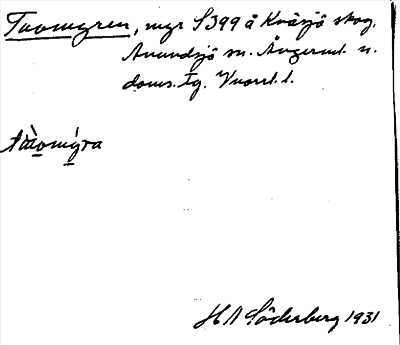 Tavomyren, myr S399 å Kvärjö skog,
Anundsjö sn. Ångerml. n.
doms. Tg. Vuorrl. l.
H A Söderberg 1931